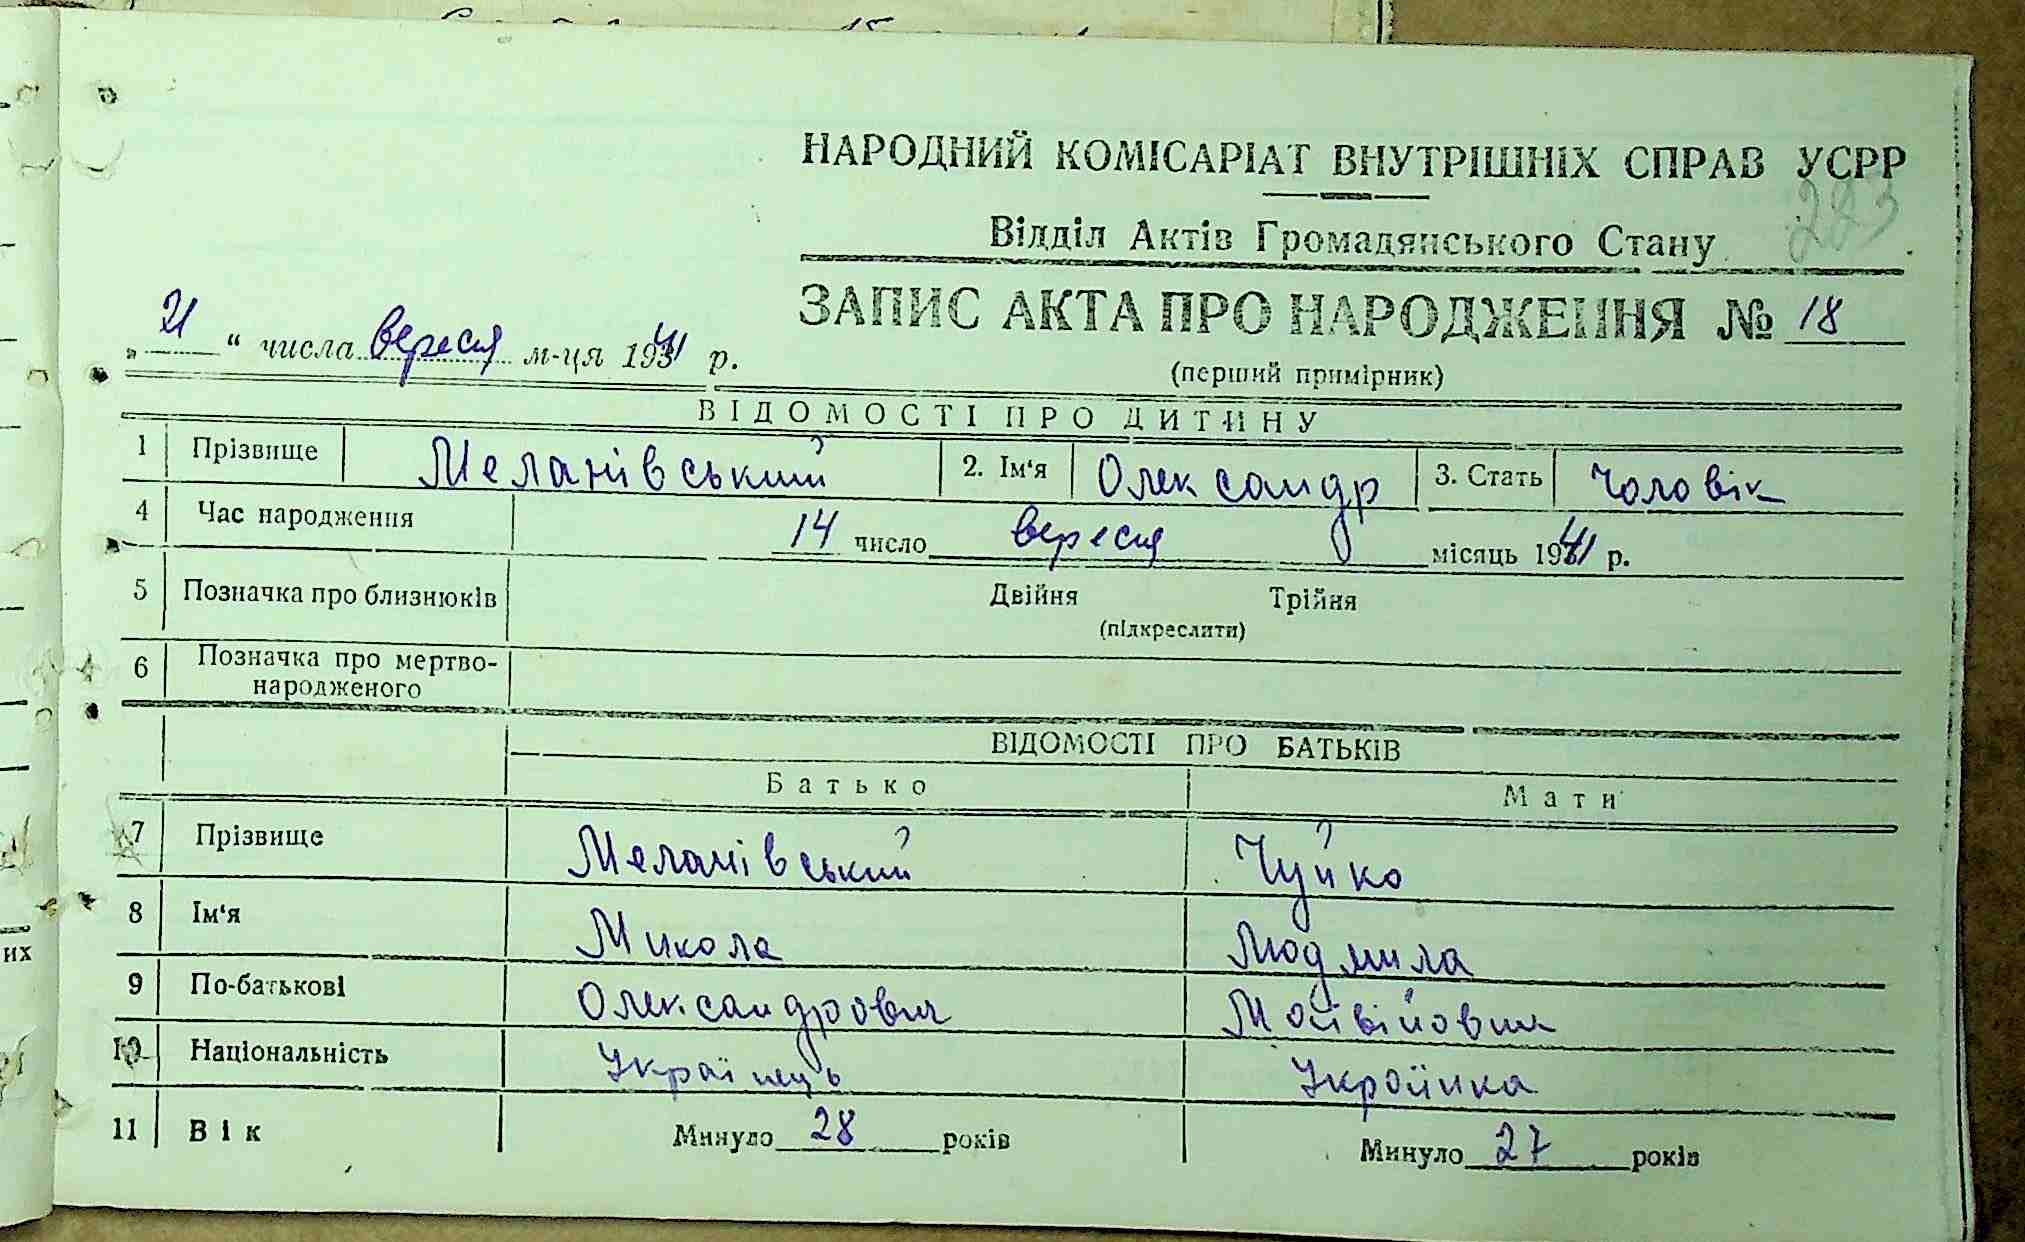 НАРОДНИЙ КОМІСАРІАТ ВНУТРІШНІХ СПРАВ УСРР
223
Відділ Актів Громадянського Стану
ЗАПИС АКТА ПРО НАРОДЖЕННЯ № 18
„21“ числа вересня м-ця 1941 р.
(перший примірник)
ВІДОМОСТІ ПРО ДИТИНУ
1 Прізвище Меланівський 2. Ім'я Олександр 3. Стать Чоловік
4 Час народження 14 число вересня місяць 1941 р.
5 Позначка про близнюків Двійня Трійня
(підкреслити)
6 Позначка про мертво-
народженого
ВІДОМОСТІ ПРО БАТЬКІВ
Батько Мати
7 Прізвище Меланівський Чуйко
8 Ім'я Микола Людмила
9 По-батькові Олександрович
10 Національність Українець Українка
11 Вік Минуло 28 років Минуло 27 років
их